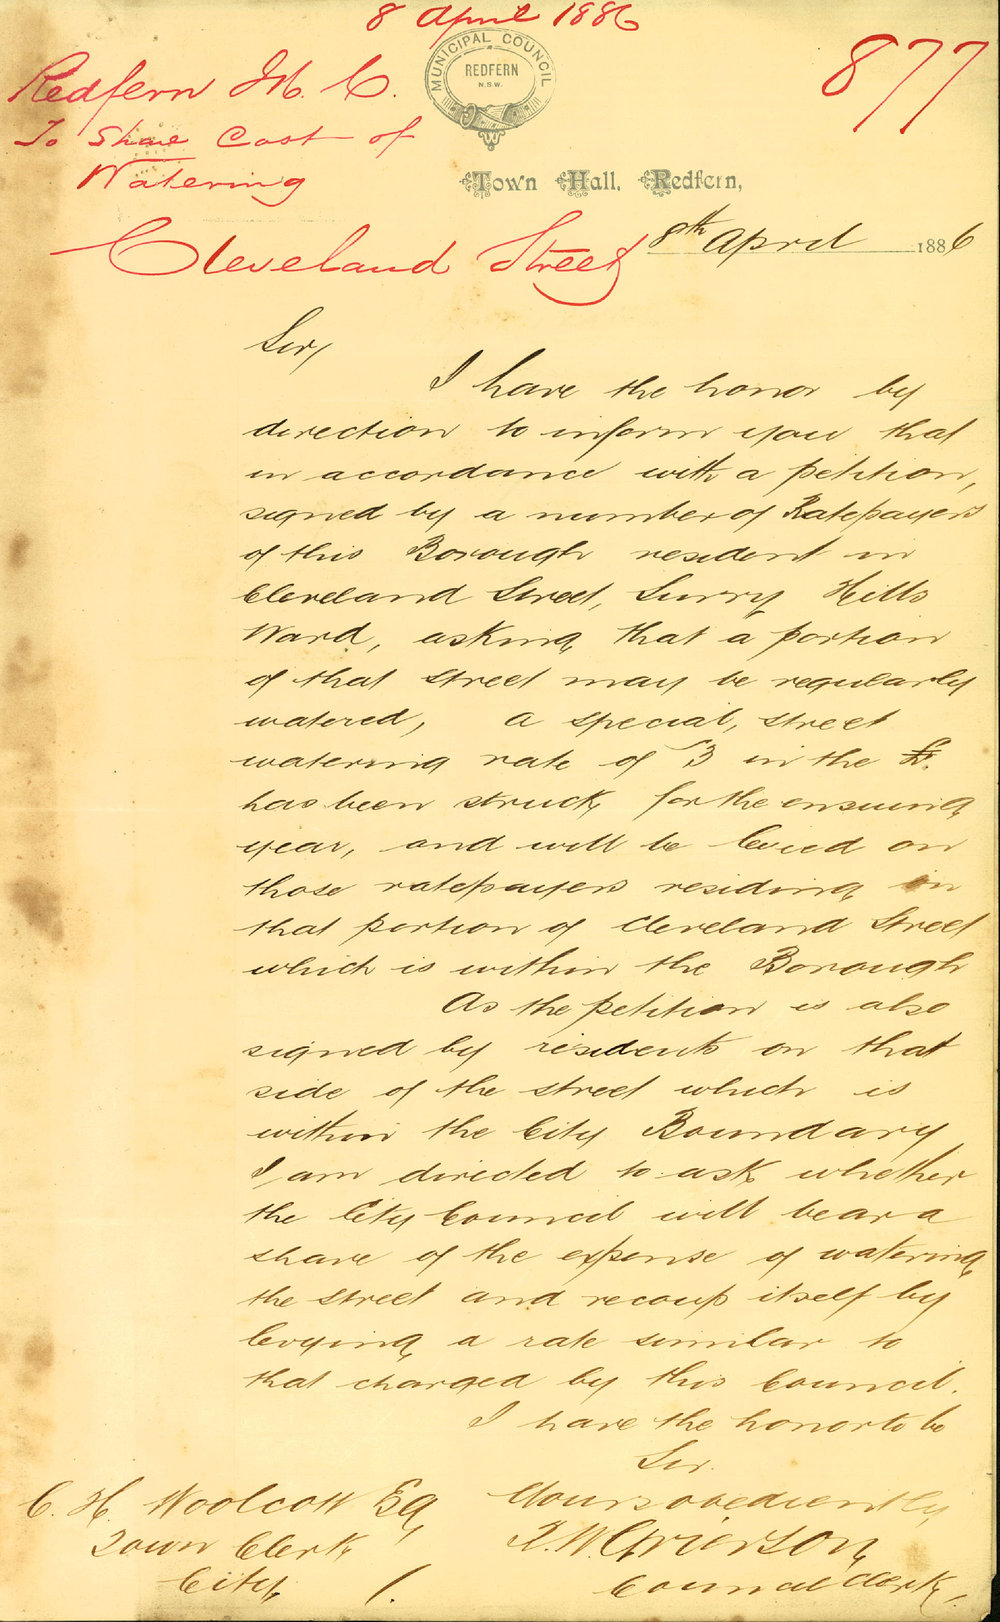 8 April 1886
877
Redfern M. C.
To Share Cost of
Watering
Cleveland Street
MUNICIPAL COUNCIL
REDFERN
N.S.W.
Town Hall, Redfern,
8th April 1886
Sir,
I have the honor by
direction to inform you that
in accordance with a petition,
signed by a number of Ratepayers
of this Borough resident in
Cleveland Street, Surry Hills
Ward, asking that a portion
of that street may be regularly
watered, a special, street
watering rate of 3 in the £.
has been struck for the ensuing
year, and will be levied on
those ratepayers residing in
that portion of Cleveland Street
which is within the Borough
As the petition is also
signed by residents on that
side of the street which is
within the City Boundary
I am directed to ask whether
the City Council will bear a
share of the expense of watering
the street and recoup itself by
levying a rate similar to
that charged by this Council.
I have the honor to be
Sir.
Yours obediently
C. H. Woolcott Esq
Town Clerk
City
Grierson
Council Clerk.